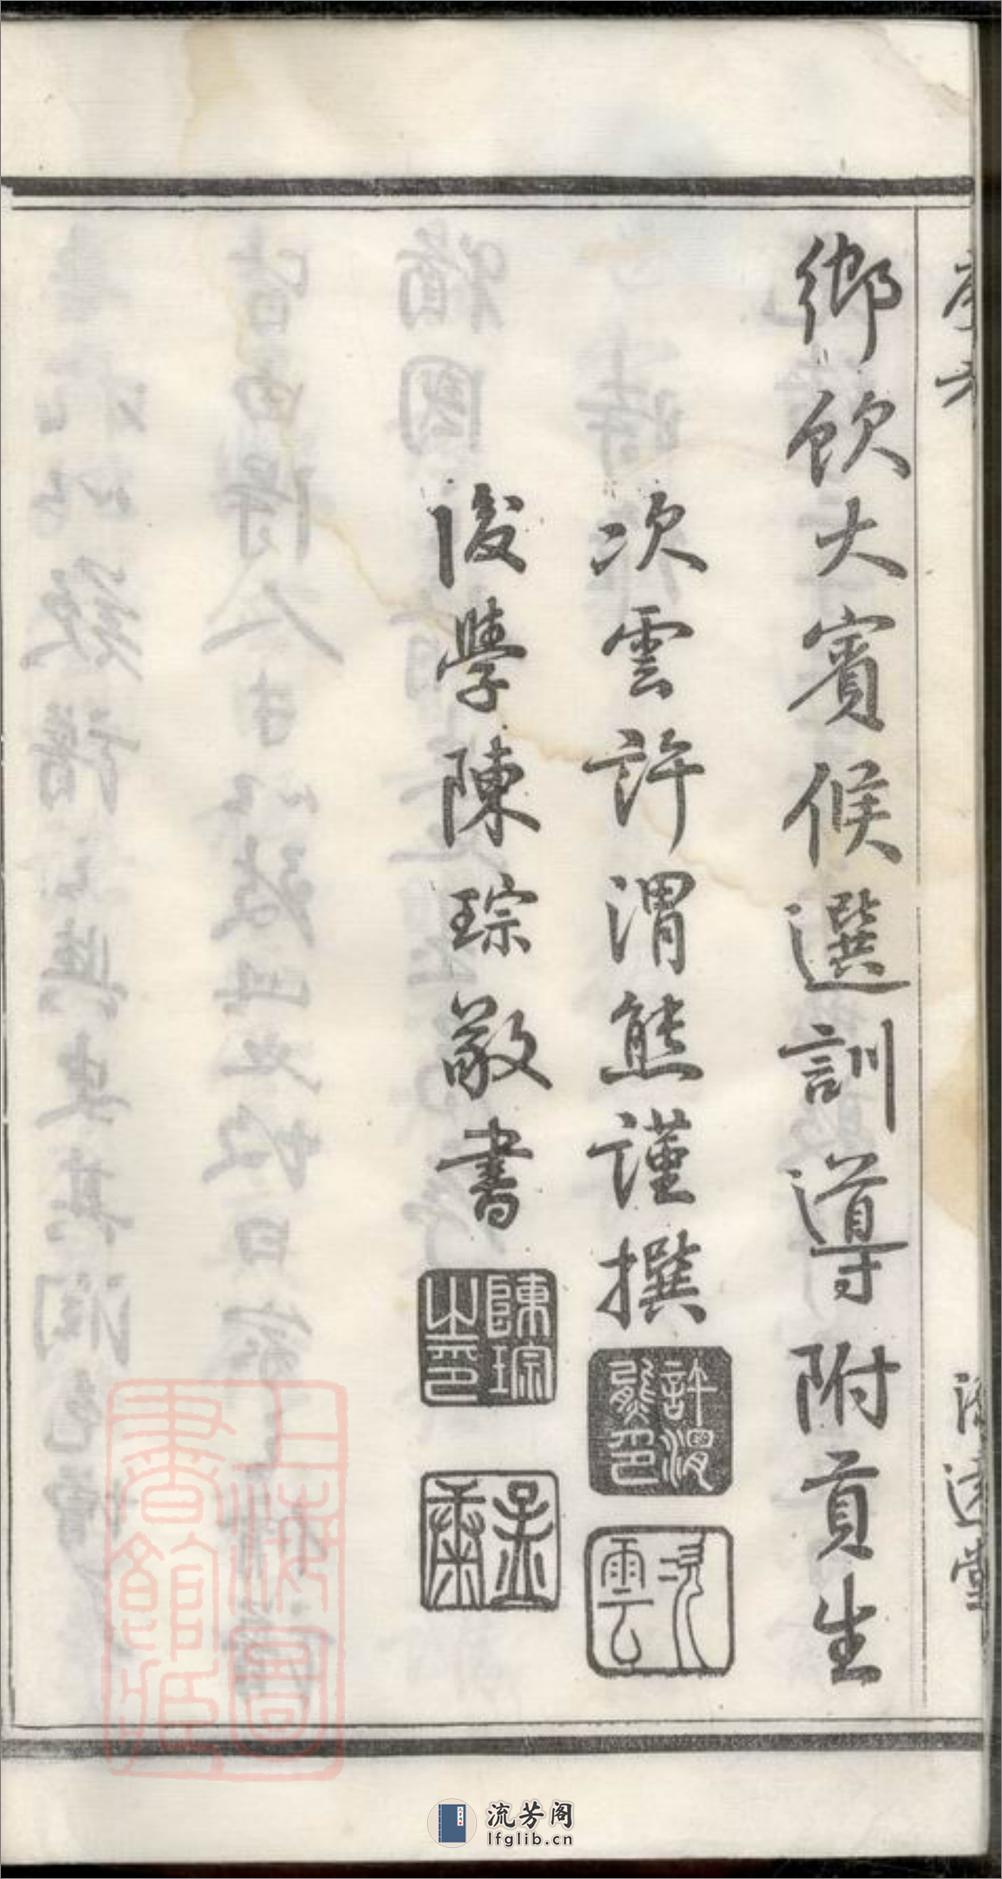 鄉飲大賓候選訓導附貢生
次雲許渭熊謹撰
許渭熊印
次雲
後學陳琮敬書
陳琮之印
上海圖書館藏
流芳阁
lfglib.cn